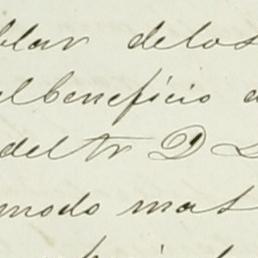 blar delos
elbeneficio a
deltr D L
modo mas